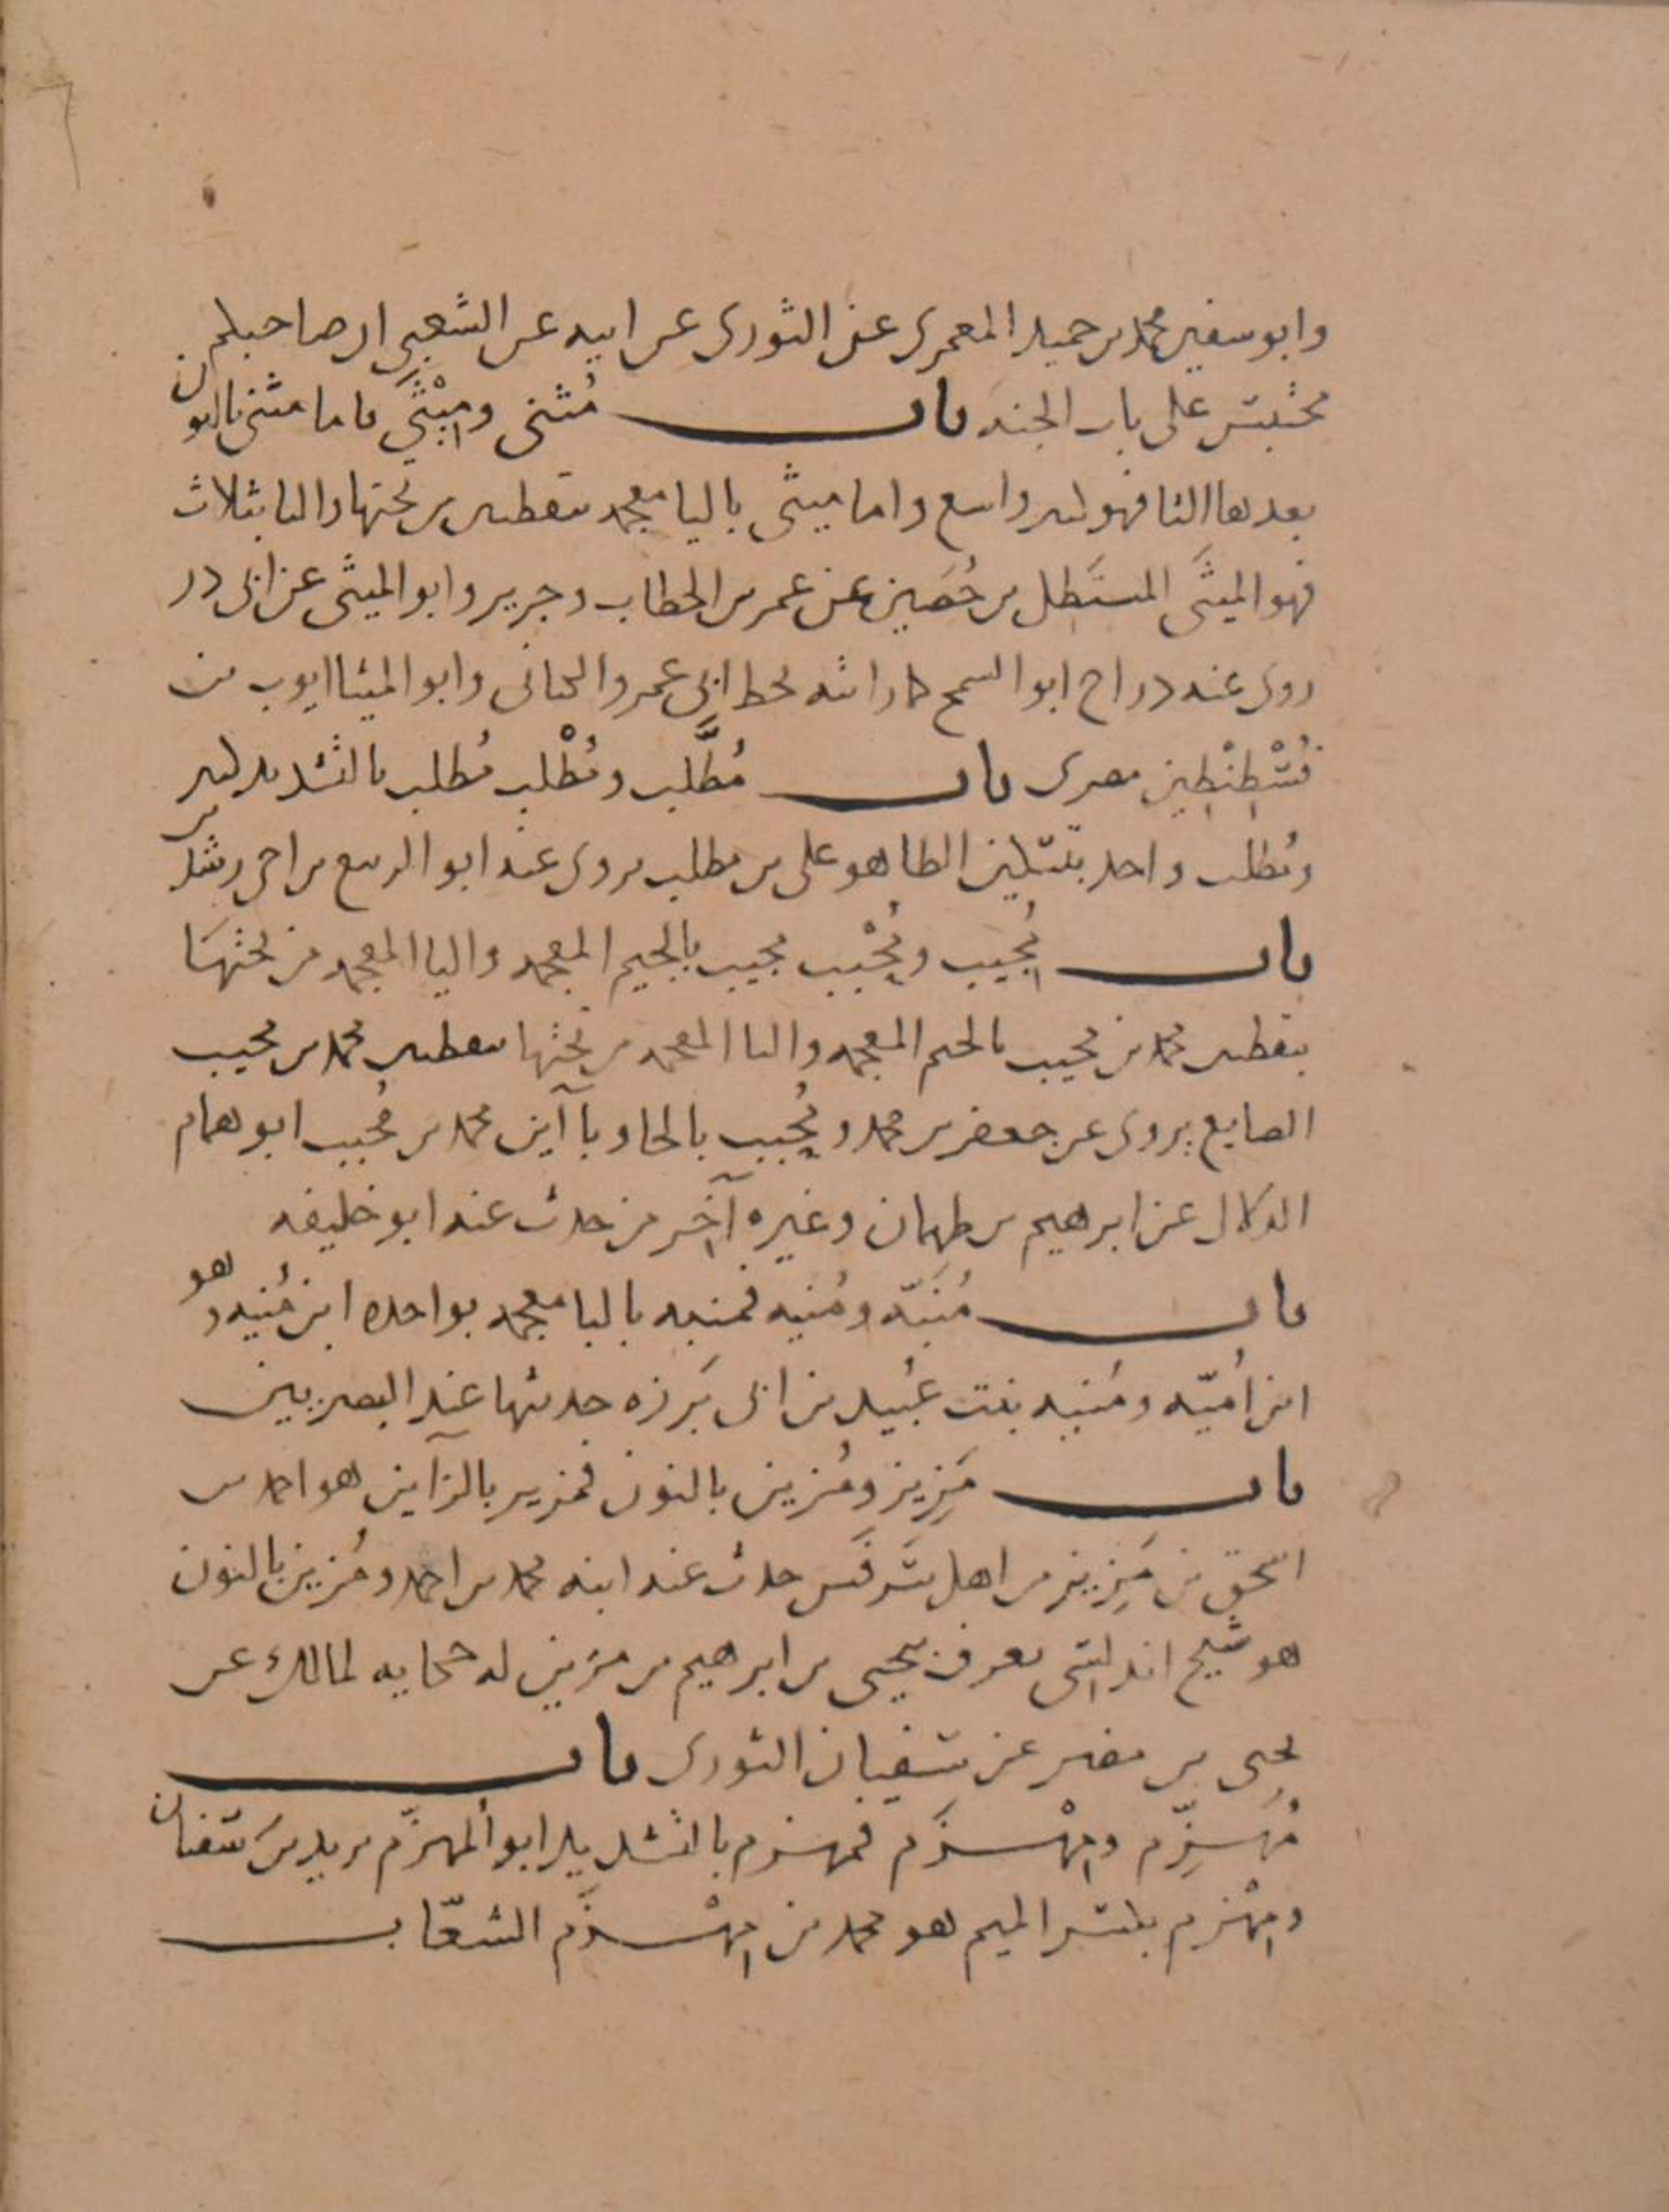 وابو سفين محمد بن حميد المعمرى عن الثورى عن ابيه عن الشعبى ان صاحبكم
محتبس على باب الجنه باب مُثنى ومِيْثَى فاما مثنى بالنون
بعدها الثا فهو كثير واسع واما ميثى باليا معجمه بنقطتين من تحتها والثا بثلاث
فهو الميثَى المستَظل بن حُصَين عن عمر بن الخطاب وجرير وابو الميثى عن ابى ذر
روى عنه دراج ابو السمح كذا راته بخط ابى عمرو وابو الميثا ايوب بن
قُسْطِنْطِين مصرى باب مُطَّلب ومُطْلب مُطلب بالتشديد كثير
ومُطلب واحد بتسكين الطا هو على بن مطلب روى عنه ابو الربيع بن اخى رشدين
باب مُجِيب ومُحْبِب مجيب بالجيم المعجمه واليا المعجمه من تحتها
بنقطتين محمد بن مجيب بالجيم المعجمه واليا المعجمه من تحتها بنقطتين محمد بن مجيب
الصايغ يروى عن جعفر بن محمد ومُحْبِب بالحا وباآين محمد بن مُحبب ابو همام
الدلال عن ابرهيم بن طهمان وغيره آخر من حدث عنه ابو خليفه
باب مُنَبّه ومُنيه فمنبه بالبا معجمه بواحده ابن مُنبه وهو
ابن اُميّه ومُنيه بنت عُبيد بن ابى بَرزه حديثها عند البصريين
باب مَزِيز ومُزين بالنون فمزيز بالزآين هو احمد بن
اسحق بن مَزِيز من اهل سَرقَس حدث عنه ابنه محمد بن احمد ومُزين بالنون
هو شيخ اندلسى يعرف بيحيى بن ابرهيم بن مزين له حكايه لمالك عن
يحيى بن مضر عن سفيان الثورى باب
مُهَزِّم ومِهْزَم فمهزم بالتشديد ابو المهزّم يزيد بن سفيان
ومِهْزم بكسر الميم هو محمد بن مِهْزَم الشعّاب